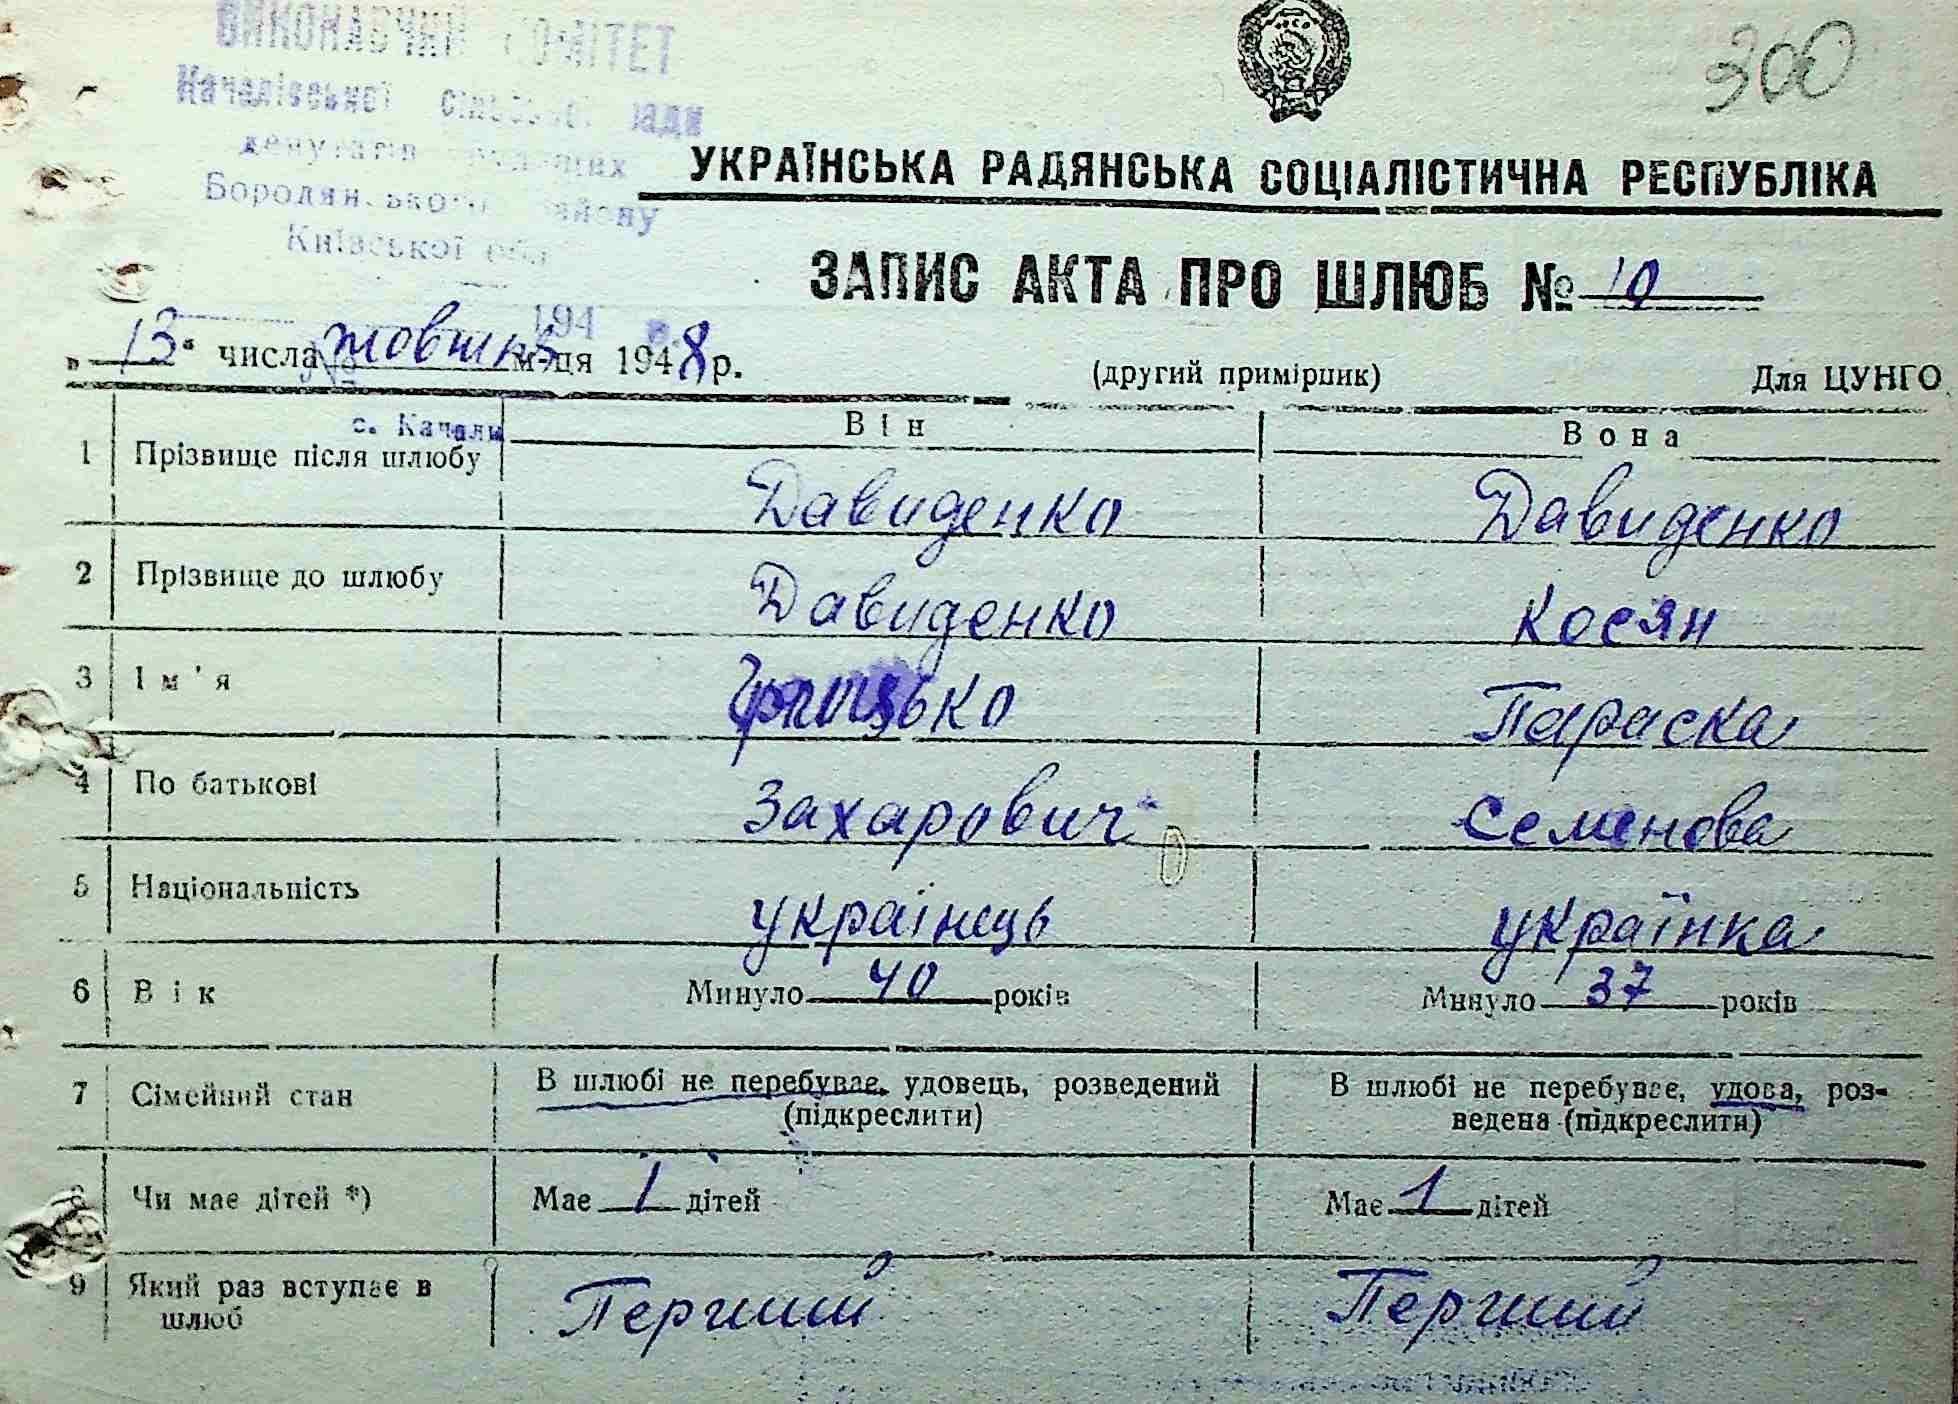 ВИКОНАВЧИЙ КОМІТЕТ
Качалівської сільської ради
депутатів трудящих
Бородянського району
Київської обл
300
УКРАЇНСЬКА РАДЯНСЬКА СОЦІАЛІСТИЧНА РЕСПУБЛІКА
ЗАПИС АКТА ПРО ШЛЮБ № 10
194 р.
№
"13" числа жовтня м-ця 1948 р.
(другий примірник) Для ЦУНГО
с. Качали
Він Вона
1 Прізвище після шлюбу Давиденко Давиденко
2 Прізвище до шлюбу Давиденко Косян
3 Ім'я Грицько Параска
4 По батькові Захарович Семенова
5 Національність українець українка
6 Вік Минуло 40 років Минуло 37 років
7 Сімейний стан В шлюбі не перебуває, удовець, розведений (підкреслити) В шлюбі не перебуває, удова, роз-
ведена (підкреслити)
8 Чи має дітей *) Має 1 дітей Має 1 дітей
9 Який раз вступає в
шлюб Перший Перший